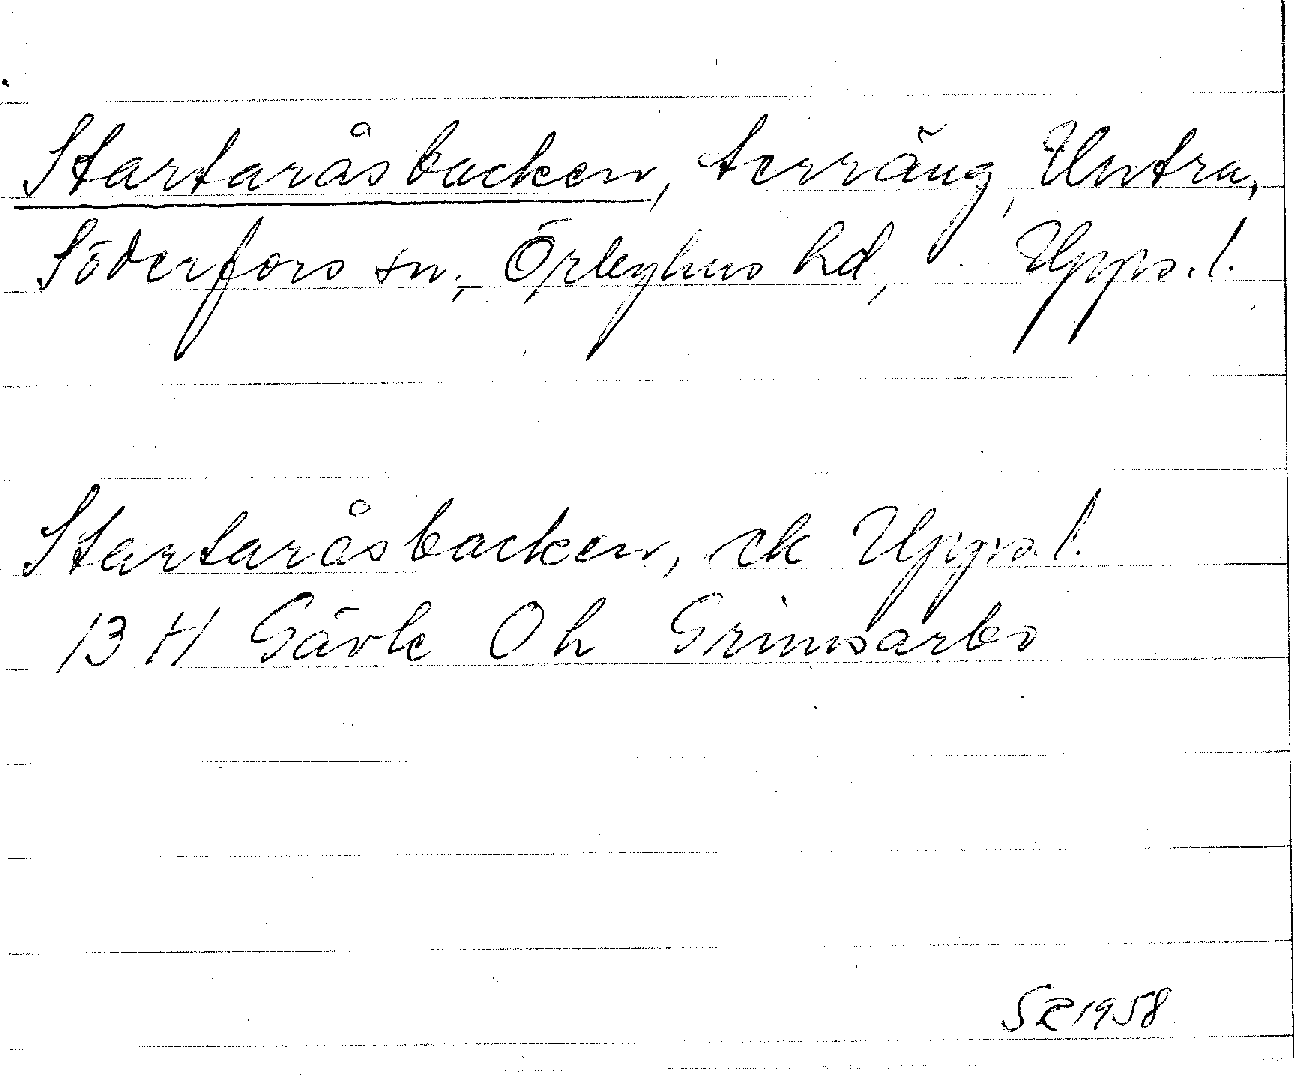 Startaråsbacken, terräng, Untra,
Söderfors sn, Örbyhus hd, Upps. l.
Startaråsbacken, ek Upps. l.
13 H Gävle 0 h Grimsarbo
SR 1958